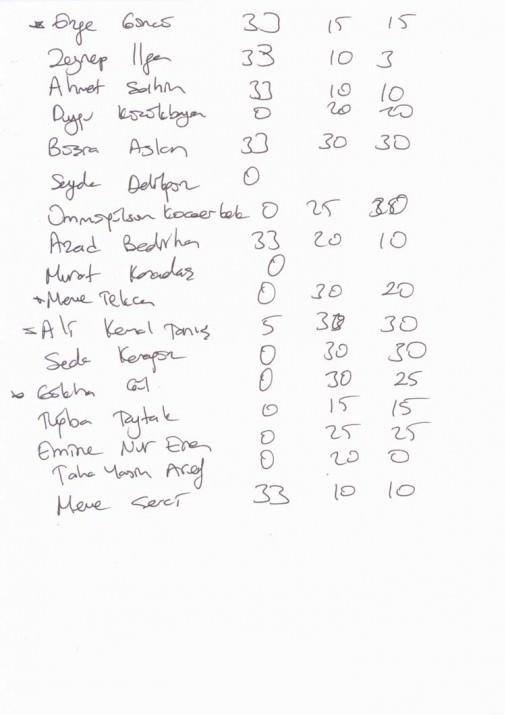 Özge Gencı 33 15 15
Zeynep İlgen 33 10 3
Ahmet Sahin 33 10 10
Duygu 0 20 20
Büşra Aslan 33 30 30
Seyda 0
0 25 30
Azad Bedirhan 33 20 10
Murat Karadaş 0
Merve Tekcan 0 30 20
Ali Kemal Tanış 5 30 30
Seda 0 30 30
Gökhan Gül 0 30 25
Tuğba Taytak 0 15 15
Emine Nur Eren 0 25 25
Taha Yasin 0 20 0
Merve 33 10 10